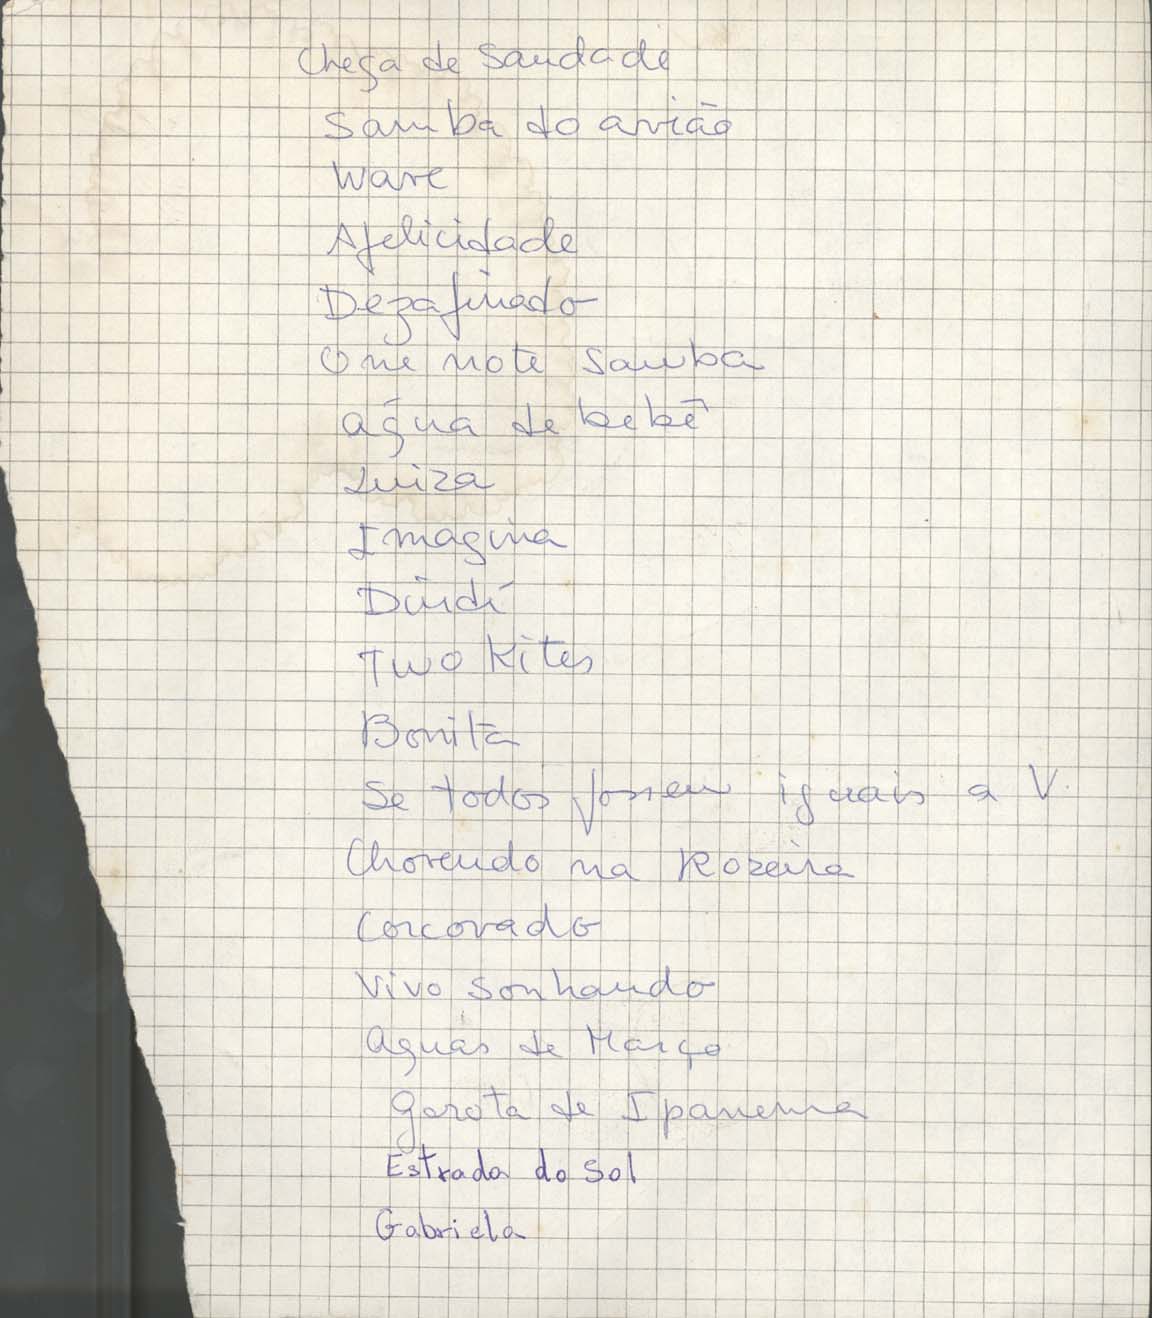 Chega de Saudade
Samba do avião
Wave
A felicidade
Dezafinado
One note Samba
água de bebê
Luiza
Imagina
Dindí
Two Kites
Bonita
Se todos fossem iguais a V.
Chorando na Rozeira
Corcovado
Vivo Sonhando
Aguas de Março
Garota de Ipanema
Estrada do Sol
Gabriela